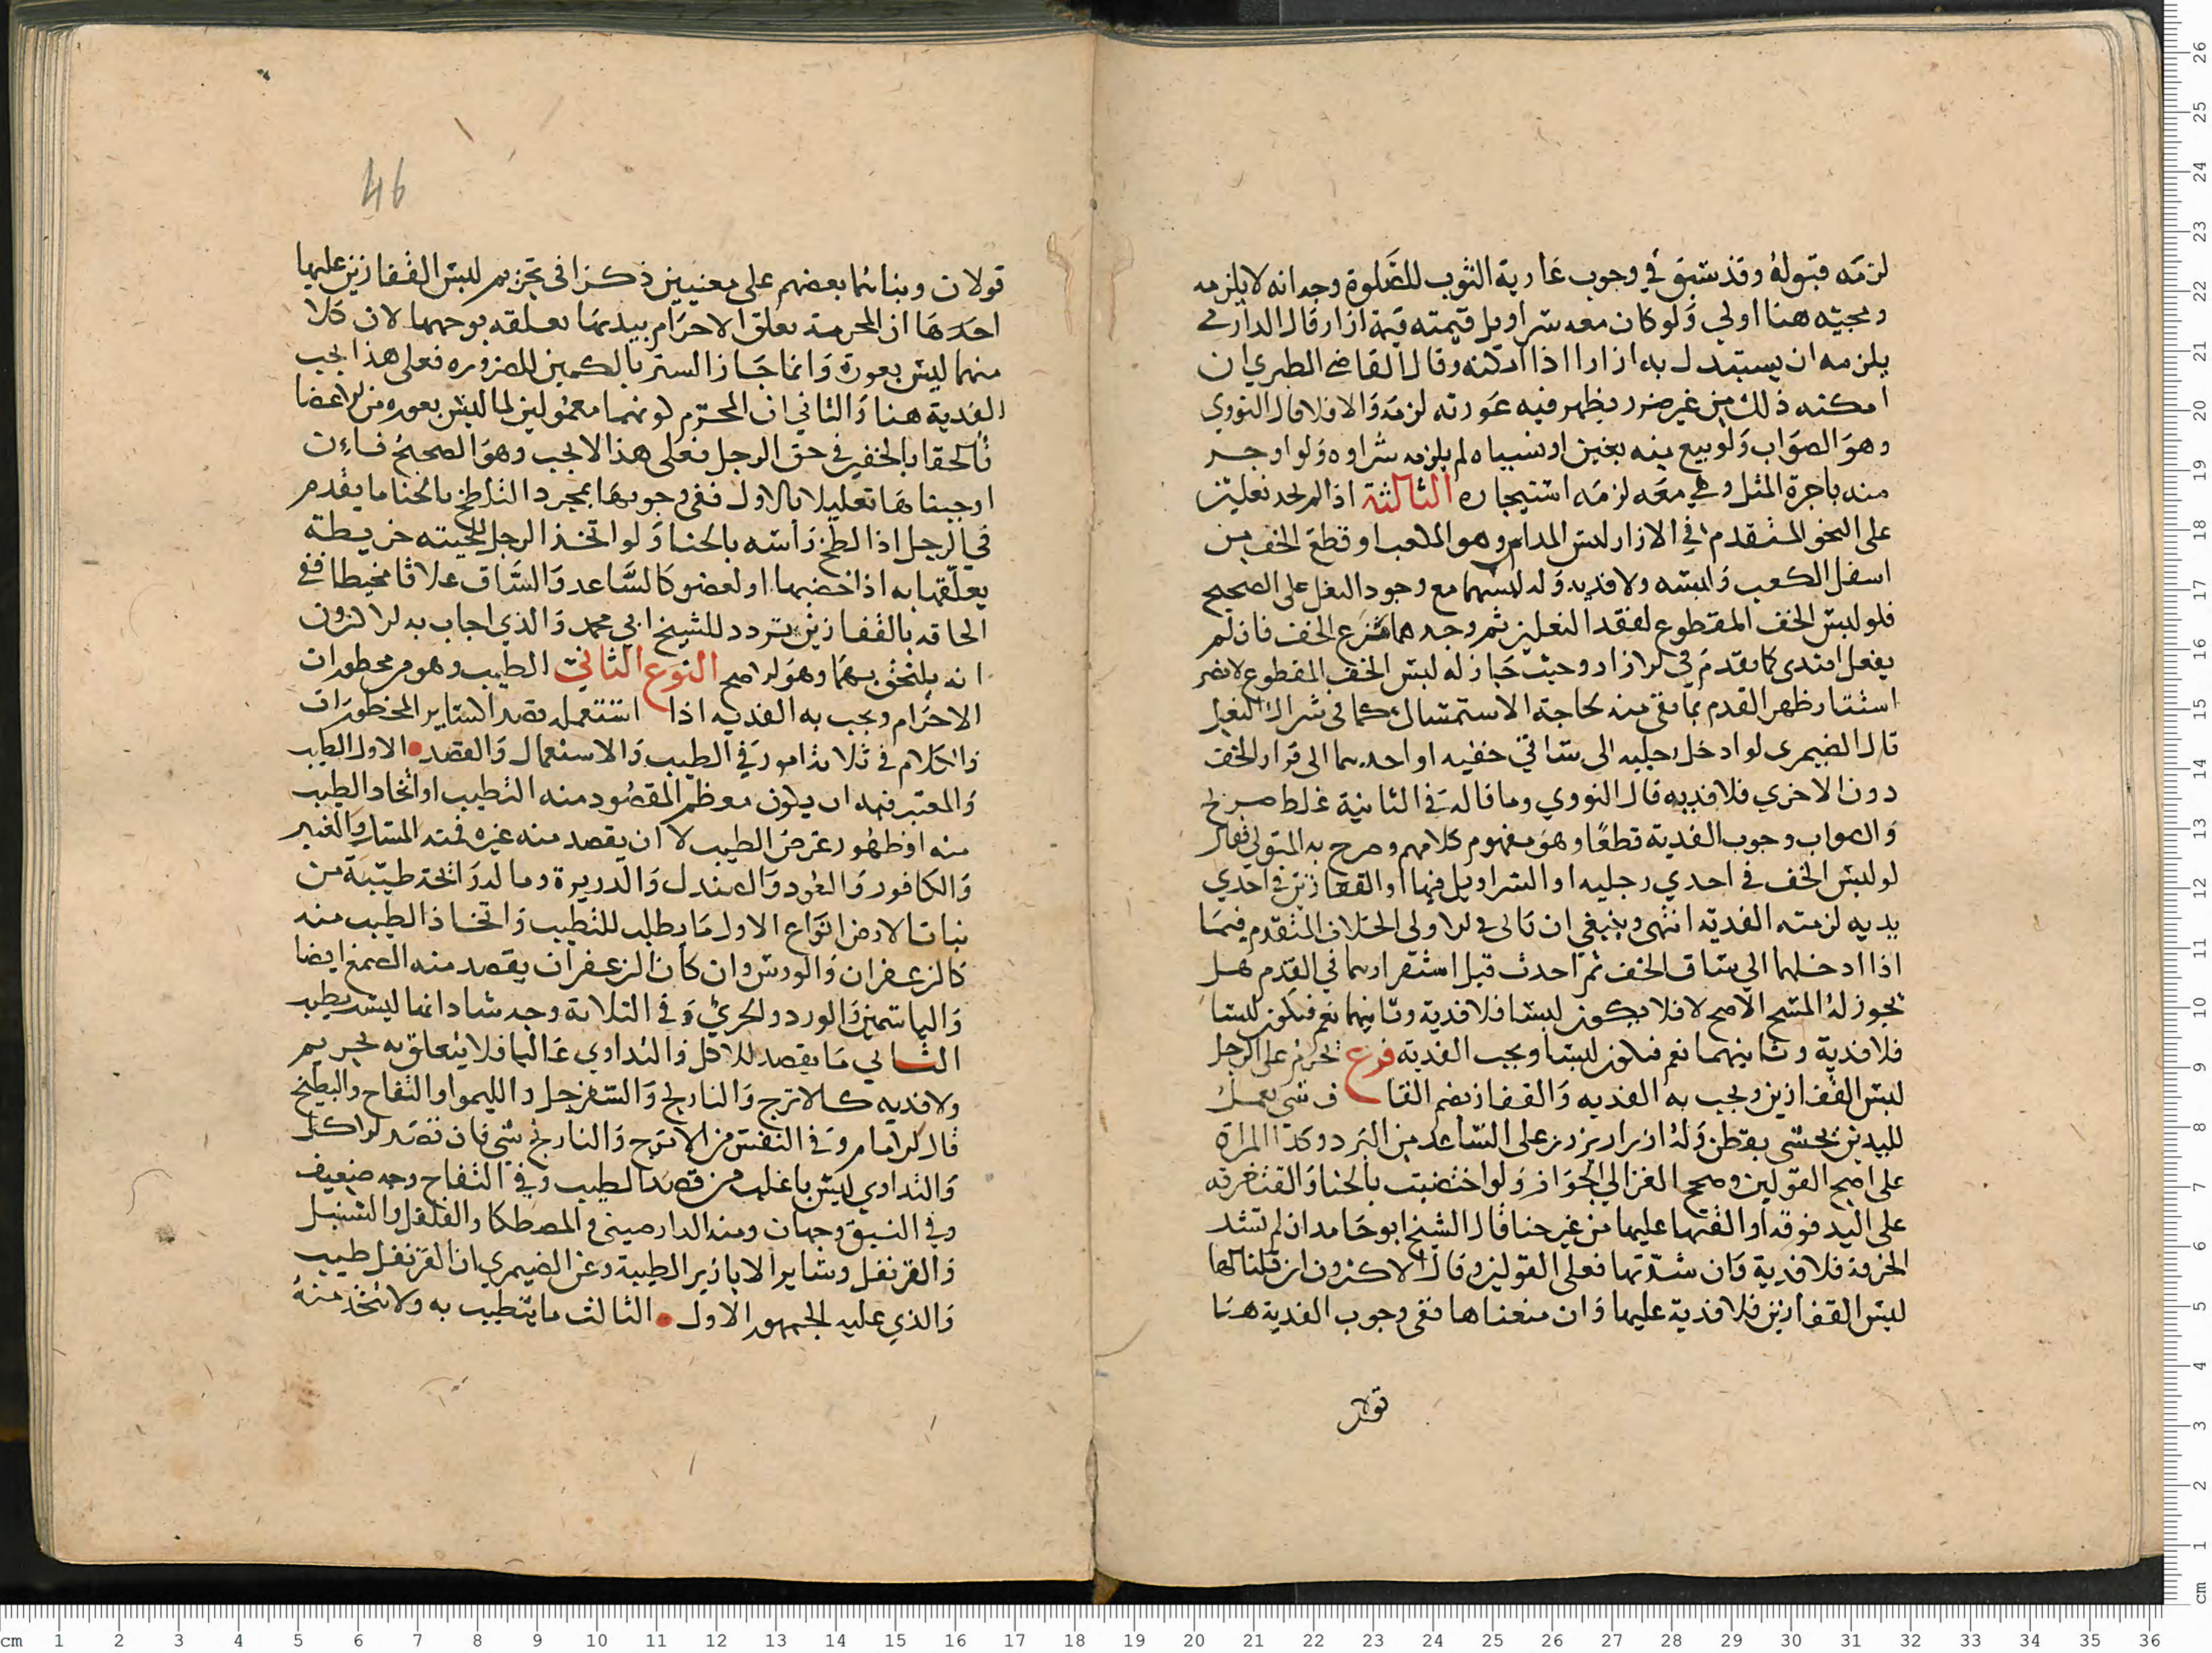 لزمه قبوله وقد سبق في وجوب عارية الثوب للصلوة وجه انه لا يلزمه
ومجيئه هنا اولي ولو كان معه سراويل قيمته قيمة ازار قال الدارمي
يلزمه ان يستبدل به ازارا اذا امكنه وقال القاضي الطبري ان
امكنه ذلك من غير ضرر يظهر فيه عورته لزمه والا فلا قال النووي
وهو الصواب ولو بيع منه بغبن او نسياه لم يلزمه شراوه ولو اوجر
منه باجرة المثل وهي معه لزمه استيجاره الثالثة اذا لم يجد نعلين
على النحو المتقدم في الازار لبس المداس وهو الملعب او قطع الخف من
اسفل الكعب ولبسه ولا فديه وله لبسهما مع وجود النعل على الصحيح
فلو لبس الخف المقطوع لفقد النعلين ثم وجدهما نزع الخف فان لم
يفعل افتدى كما تقدم في الازار وحيث جاز له لبس الخف المقطوع لا يضر
استتار ظهر القدم بما بقي منه لحاجة الاستمساك كما في شراك النعل
قال الصيمرى لو ادخل رجليه الى ساقي خفيه او احديهما الى قرار الخف
دون الاخري فلا فديه قال النووي وما قاله في الثانية غلط صريح
والصواب وجوب الفدية قطعا وهو مفهوم كلامهم وصرح به المتولي فقال
لو لبس الخف في احدي رجليه او السراويل فيها او القفازين في احدي
يديه لزمته الفدية انتهى وينبغي ان ياتى في الاولى الخلاف المتقدم فيما
اذا ادخلهما الي ساق الخف ثم احدث قبل استقرارهما في القدم هل
يجوز له المسح الاصح لا فلا يكون لبسا فلا فدية وثانيهما نعم فيكون لبسا
فلا فدية وثانيهما نعم فيكون لبسا ويجب الفدية فرع يحرم على الرجل
لبس القفازين ويجب به الفديه والقفاز بضم القاف شي يعمل
لليدين يحشى بقطن وله ازرار يزرر على الساعد من البرد وكذا المراة
على اصح القولين وصحح الغزالي الجواز ولو اختضبت بالحنا والقت خرقه
على اليد فوقه او القتها عليها من غير حنا قال الشيخ ابو حامد ان لم تشد
الخرقة فلا فدية وان شدتها فعلى القولين وقال الاكثرون ان قلنا لها
لبس القفازين فلا فدية عليها وان منعناها ففى وجوب الفدية هنا
قولان
46
قولان وبناهما بعضهم على معنيين ذكرا في تحريم لبس القفازين عليها
احدها ان المحرمة تعلق الاحرام بيديها تعلقه بوجهها لان كلا
منهما ليس بعورة وانما جاز الستر بالكمين للضروره فعلى هذا يجب
الفدية هنا والثاني ان المحرم لونهما معمولين لما ليس بعوره من الاعضا
فالحقا بالخفين في حق الرجل فعلى هذا لا يجب وهو الصحيح فان
اوجبناها تعليلا بالاول ففي وجوبها بمجرد التلطخ بالحنا ما يقدم
في الرجل اذا لطخ راسه بالحنا ولو اتخذ الرجل للحيته خريطة
يعلقها به اذا خضبها او لعضو كالساعد والساق غلافا مخيطا ففي
الحاقه بالقفازين تردد للشيخ ابي محمد والذي اجاب به الاكثرون
انه يلتحق بهما وهو الاصح النوع الثاني الطيب وهو من محظورات
الاحرام ويجب به الفديه اذا استعمله قصدا كساير المحظورات
والكلام في ثلاثة امور في الطيب والاستعمال والقصد الاول الطيب
والمعتبر فيه ان يكون معظم المقصود منه التطيب او اتخاذ الطيب
منه او ظهور غرض الطيب لا ان يقصد منه غيره فمنه المسك والعنبر
والكافور والعود والصندل والذريرة وما له رائحة طيبة من
نبات الارض انواع الاول ما يطلب للتطيب واتخاذ الطيب منه
كالزعفران والورس وان كان الزعفران يقصد منه الصبغ ايضا
والياسمين والورد والخيري وفي الثلاثة وجه شاذ انها ليست بطيب
الثاني ما يقصد للاكل والتداوي غالبا فلا يتعلق به تحريم
ولا فديه كالاترج والنارنج والسفرجل والليموا والتفاح والبطيخ
قال الامام وفي النفس من الاترج والنارنج شي فان قصد الاكل
والتداوي ليس باغلب من قصد الطيب وفي التفاح وجه ضعيف
وفي النبق وجهان ومنه الدارصيني والمصطكا والفلفل والسنبل
والقرنفل وساير الابازير الطيبة وعن الصيمري ان القرنفل طيب
والذي عليه الجمهور الاول الثالث ما يتطيب به ولا يتخذ منه